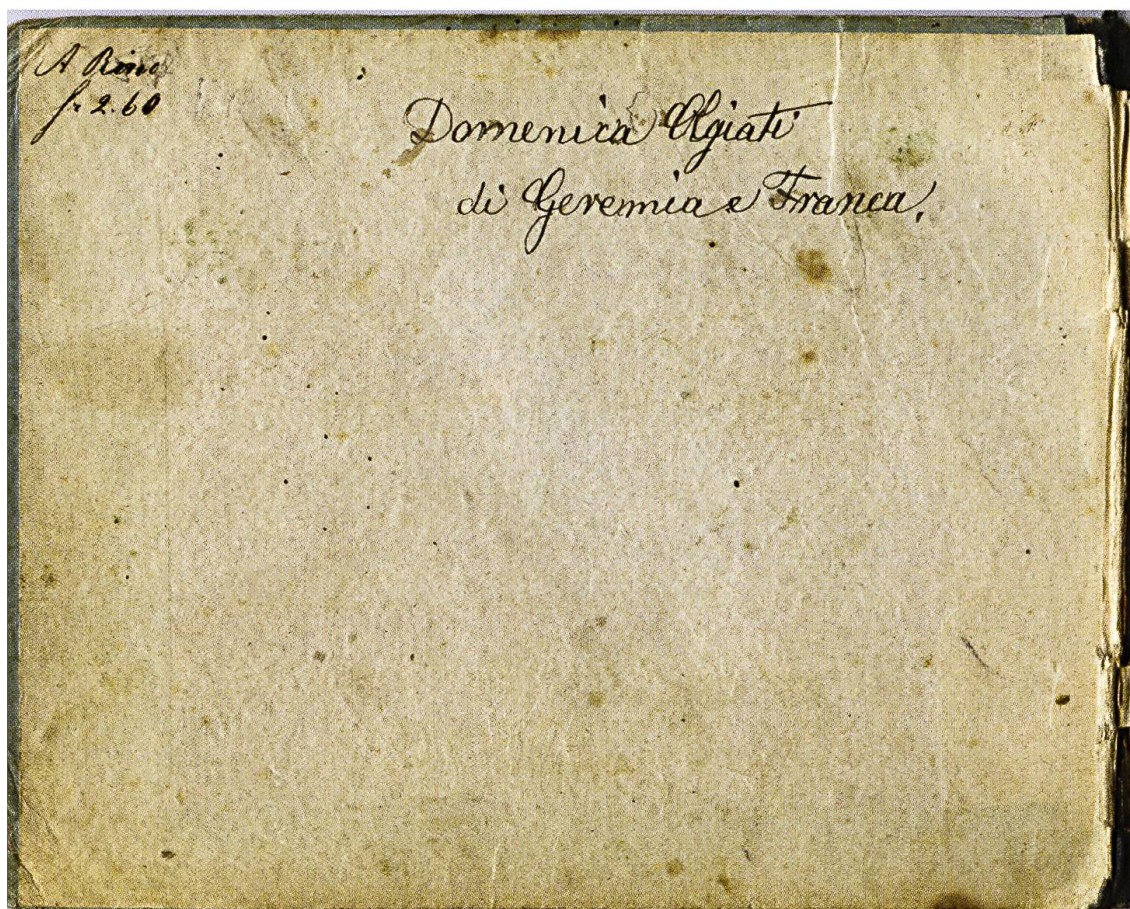 A
fr 2.60
Domenica Olgiati
di Geremia e Franca,